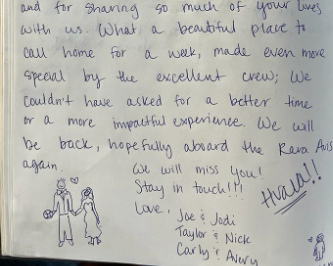 and for sharing so much of your lives
with us. What a beautiful place to
call home for a week, made even more
special by the excellent crew; We
couldn't have asked for a better time
or a more impactful experience. We will
be back, hopefully aboard the Rara Avis
again.
We will miss you!
Stay in touch!!!
Hvala!!
Love,
Joe & Jodi
Taylor & Nick
Carly & Avery